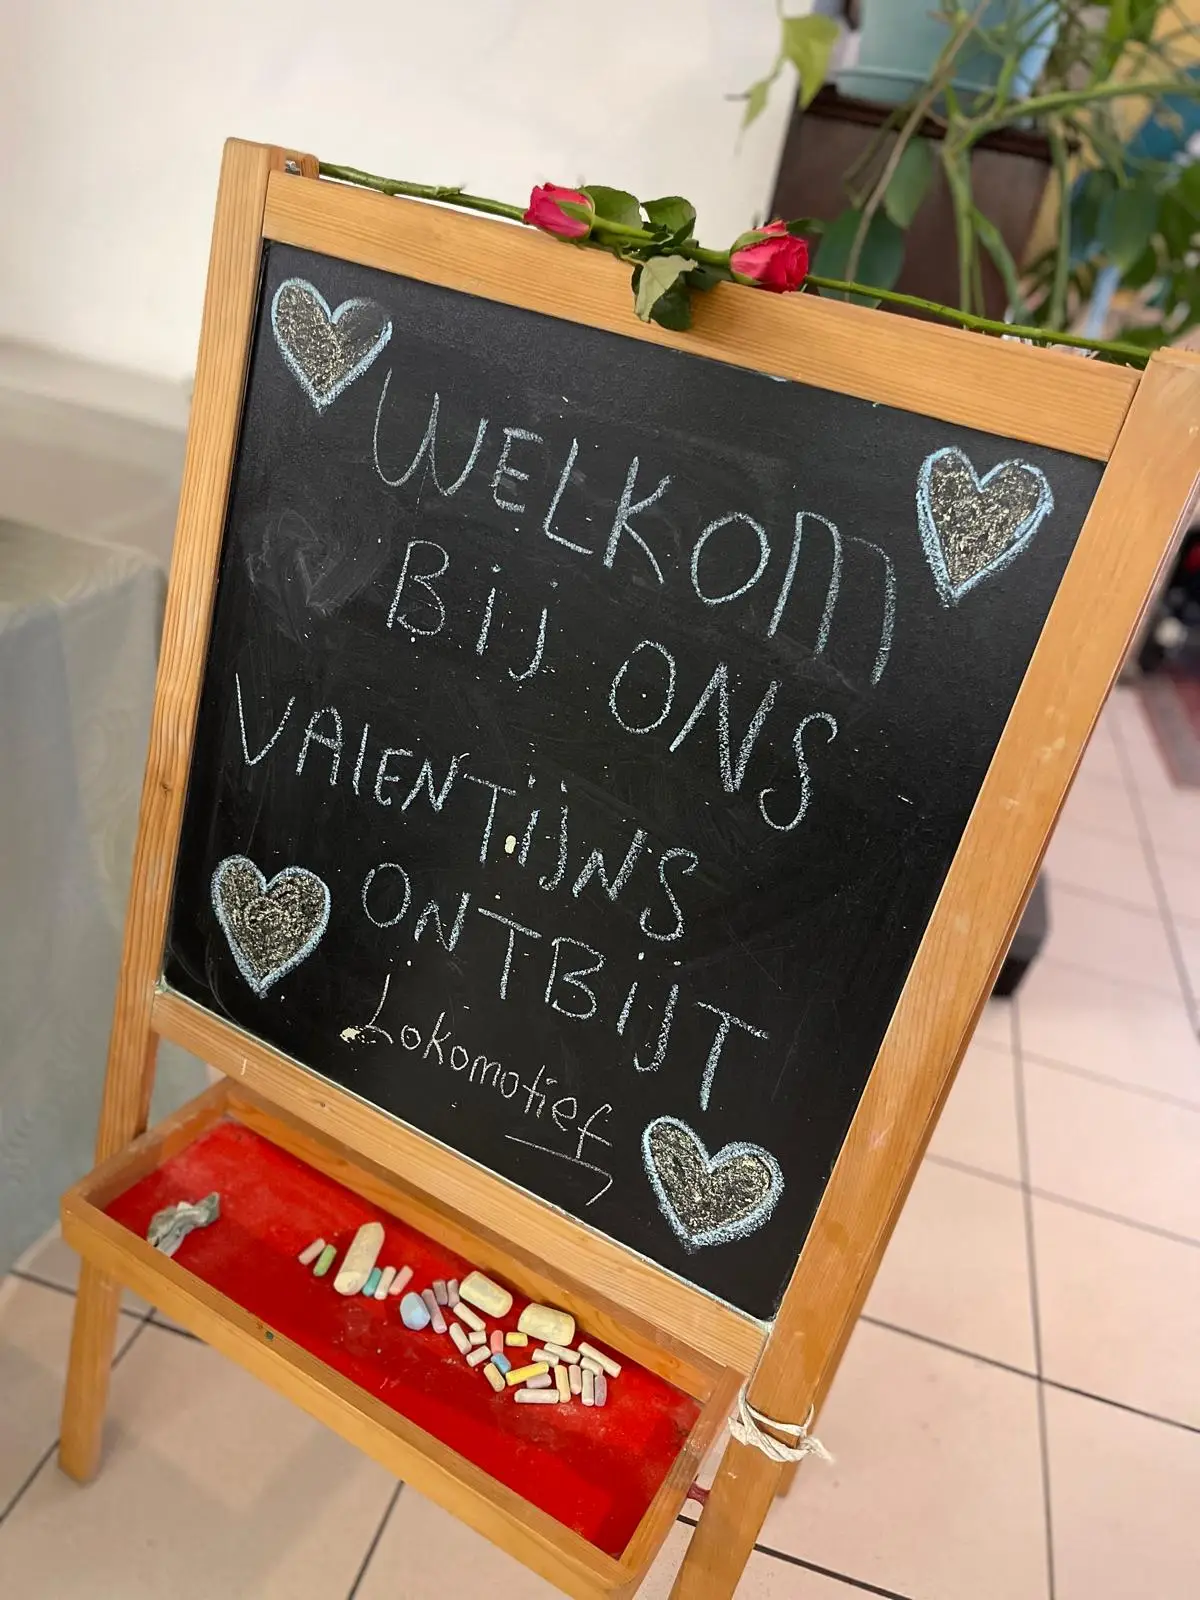 WELKOM
BIJ ONS
VALENTIJNS
ONTBIJT
Lokomotief